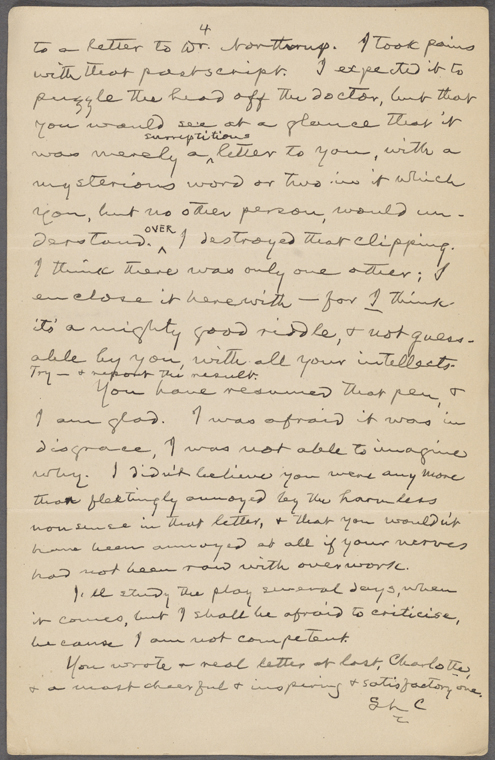 4
to a letter to Dr. Northrup. I took pains
with that postscript. I expected it to
puzzle the head off the doctor, but that
you would see at a glance that it
was merely a surreptitious letter to you, with a
mysterious word or two in it which
you, but no other person, would un-
derstand. OVER I destroyed that clipping.
I think there was only one other; I
enclose it herewith — for I think
it's a mighty good riddle, & not guess-
able by you, with all your intellects.
Try — & report the result.
You have resumed that pen, &
I am glad. I was afraid it was in
disgrace, I was not able to imagine
why. I didn't believe you were any more
than fleetingly annoyed by the harmless
nonsense in that letter, & that you wouldn't
have been annoyed at all if your nerves
had not been raw with overwork.
I'll study the play several days, when
it comes, but I shall be afraid to criticise,
because I am not competent.
You wrote a real letter at last, Charlotte,
& a most cheerful & inspiring & satisfactory one.
SLC